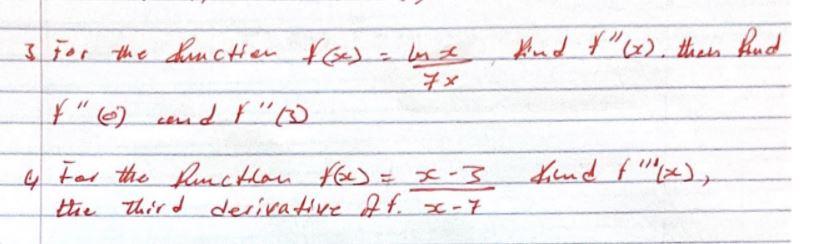 3 For the function f(x) = ln x / 7x, find f"(x). then find
f"(0) and f"(3)
4 For the function f(x) = x-3 / x-7 find f'''(x),
the third derivative of f.